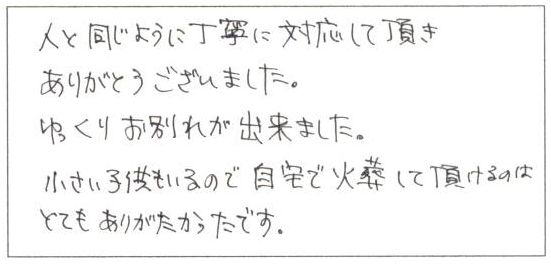 人と同じように丁寧に対応して頂き
ありがとうございました。
ゆっくりお別れが出来ました。
小さい子供もいるので自宅で火葬して頂けるのは
とてもありがたかったです。